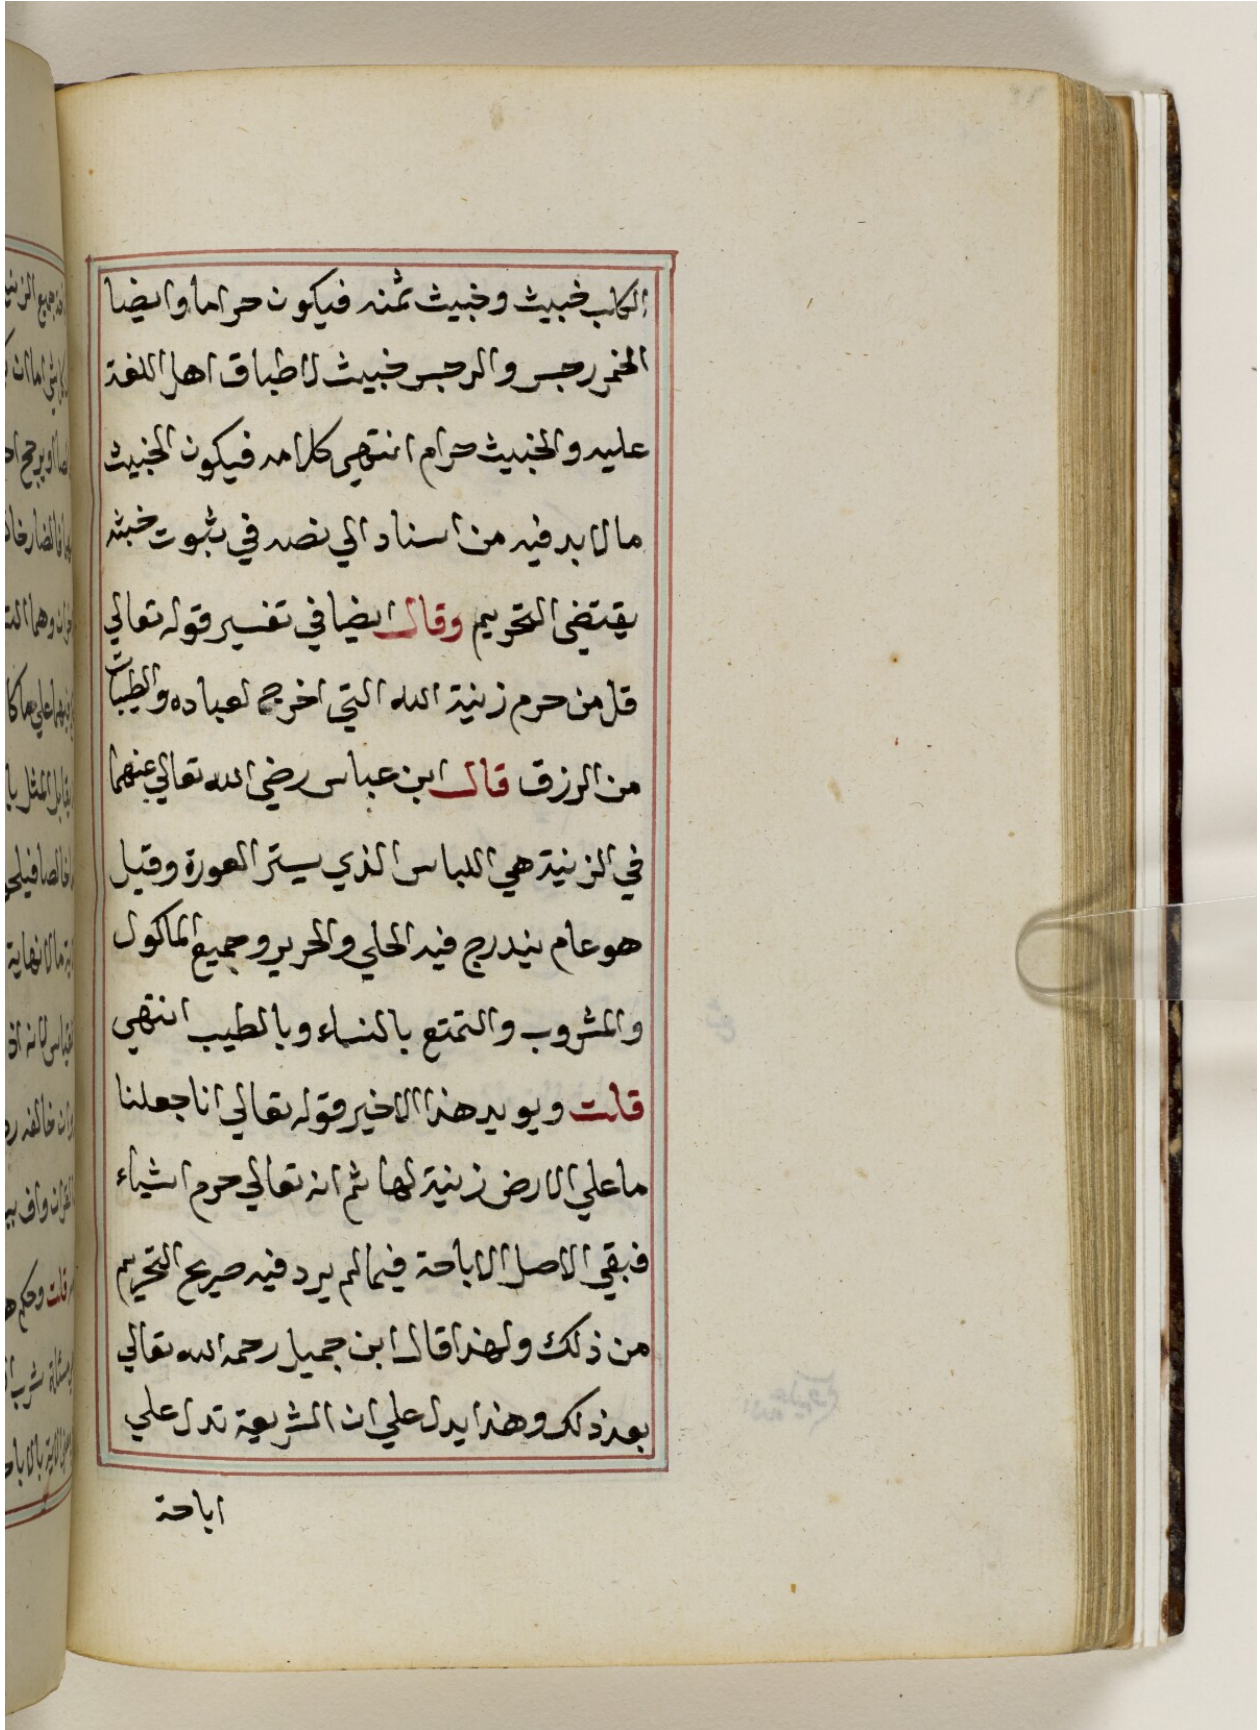 الكلب خبيث وخبيث ثمنه فيكون حراما وايضا
الخمر رجس والرجس خبيث لاطباق اهل اللغة
عليه والخبيث حرام انتهي كلامه فيكون الخبيث
ما لا بد فيه من اسناد الي نصه في ثبوت خبثه
يقتضي التحريم وقال ايضا في تفسير قوله تعالي
قل من حرم زينة الله التي اخرج لعباده والطيبات
من الرزق قال ابن عباس رضي الله تعالي عنهما
في الزينة هي اللباس الذي يستر العورة وقيل
هو عام يندرج فيه الحلي والحرير وجميع الماكول
والمشروب والتمتع بالنساء وبالطيب انتهي
قلت ويويد هذا الاخير قوله تعالي انا جعلنا
ما علي الارض زينة لها ثم انه تعالي حرم اشياء
فبقي الاصل الاباحة فيما لم يرد فيه صريح التحريم
من ذلك ولهذا قال ابن جميل رحمه الله تعالي
بعد ذلك وهذا يدل علي ان الشريعة تدل علي
اباحة